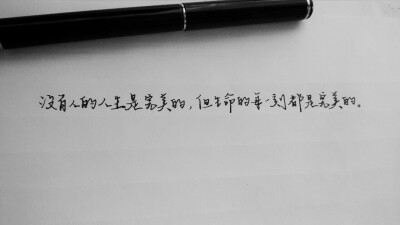 没有人的人生是完美的，但生命的每一刻都是完美的。